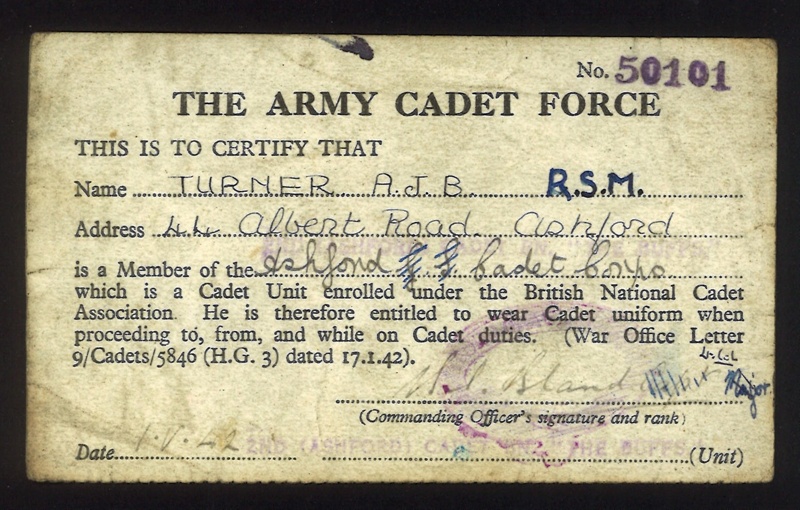 No. 50101
THE ARMY CADET FORCE
THIS IS TO CERTIFY THAT
Name TURNER A.J.B. R.S.M.
Address 44 Albert Road. Ashford
is a Member of the Ashford Cadet Corps
which is a Cadet Unit enrolled under the British National Cadet
Association. He is therefore entitled to wear Cadet uniform when
proceeding to, from, and while on Cadet duties. (War Office Letter
9/Cadets/5846 (H.G. 3) dated 17.1.42).
Lt. Col
Major
(Commanding Officer's signature and rank)
Date 42 2ND (ASHFORD) CADET BN. THE BUFFS (Unit)